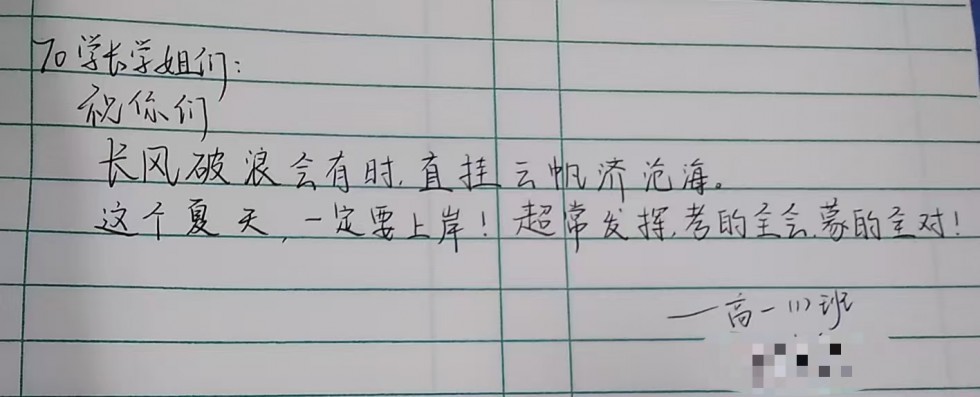 To 学长学姐们:
祝你们
长风破浪会有时,直挂云帆济沧海。
这个夏天,一定要上岸!超常发挥,考的全会,蒙的全对!
——高一(1)班